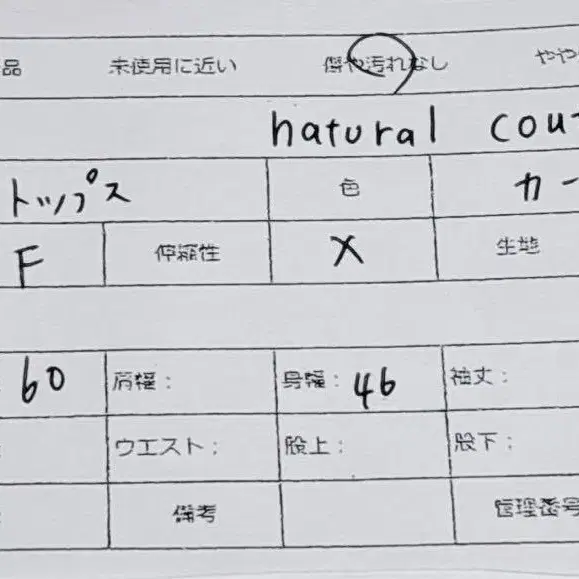 品 未使用に近い 傷や汚れなし やや
natural cou
トップス 色 カー
F 伸縮性 X 生地
60 肩幅： 身幅：46 袖丈：
： ウエスト： 股上： 股下：
： 備考 管理番号